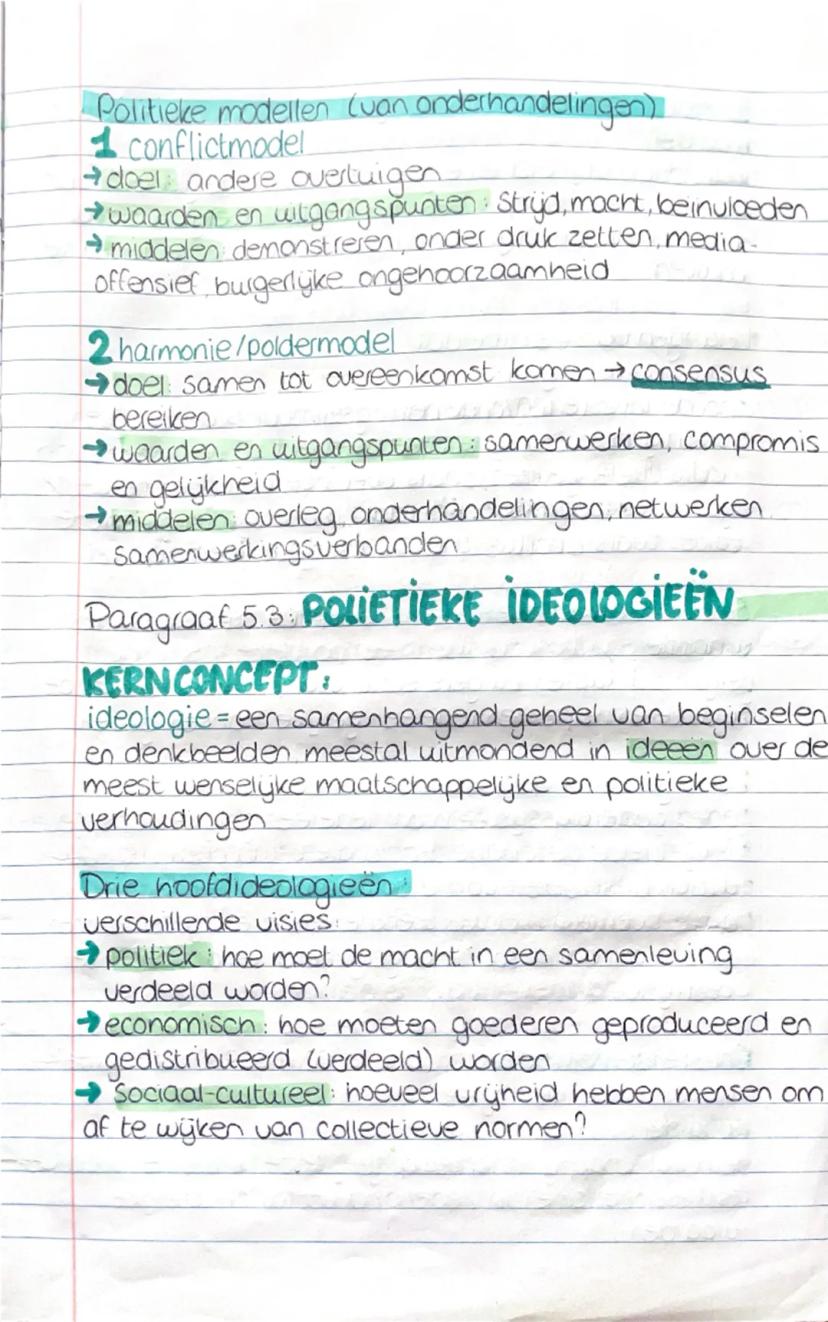 Politieke modellen (van onderhandelingen)
1 conflictmodel
→ doel: andere overtuigen
→ waarden en uitgangspunten: Strijd, macht, beïnvloeden
→ middelen: demonstreren, onder druk zetten, media-
offensief, burgerlijke ongehoorzaamheid
2 harmonie/poldermodel
→ doel: samen tot overeenkomst komen → consensus
bereiken
→ waarden en uitgangspunten: samenwerken, compromis
en gelijkheid
→ middelen: overleg, onderhandelingen, netwerken
samenwerkingsverbanden
Paragraaf 5.3: POLIETIEKE IDEOLOGIEËN
KERNCONCEPT:
ideologie = een samenhangend geheel van beginselen
en denkbeelden, meestal uitmondend in ideeën over de
meest wenselijke maatschappelijke en politieke
verhoudingen
Drie hoofdideologieën:
verschillende visies:
→ politiek: hoe moet de macht in een samenleving
verdeeld worden?
→ economisch: hoe moeten goederen geproduceerd en
gedistribueerd (verdeeld) worden
→ Sociaal-cultureel: hoeveel vrijheid hebben mensen om
af te wijken van collectieve normen?